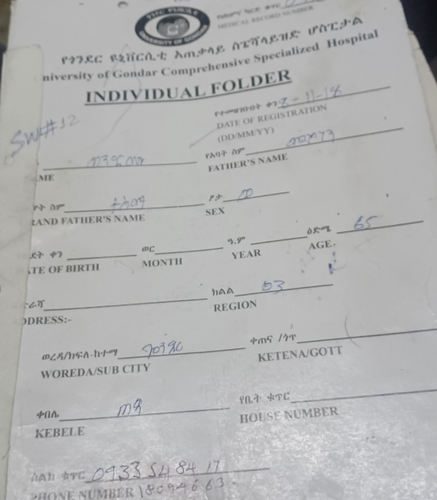 UNIVERSITY OF GONDAR
የህክምና ካርድ ቁጥር
MEDICAL RECORD NUMBER
የጎንደር ዩኒቨርሲቲ አጠቃላይ ስፔሻላይዝድ ሆስፒታል
niversity of Gondar Comprehensive Specialized Hospital
INDIVIDUAL FOLDER
SW#12
የተመዘገበበት ቀን 2-11-18
DATE OF REGISTRATION
(DD/MM/YY)
AME
የአባት ስም
FATHER'S NAME
ት ስም
RAND FATHER'S NAME
ፆታ
SEX
ደት ቀን ወር ዓ.ም ዕድሜ 65
TE OF BIRTH MONTH YEAR AGE.
ራሻ ክልል 03
DDRESS:- REGION
ወረዳ/ክፍለ-ከተማ ጎንደር ቀጠና /ጎጥ
WOREDA/SUB CITY KETENA/GOTT
ቀበሌ የቤት ቁጥር
KEBELE HOUSE NUMBER
ስልክ ቁጥር 0933 54 84 17
PHONE NUMBER 18094663